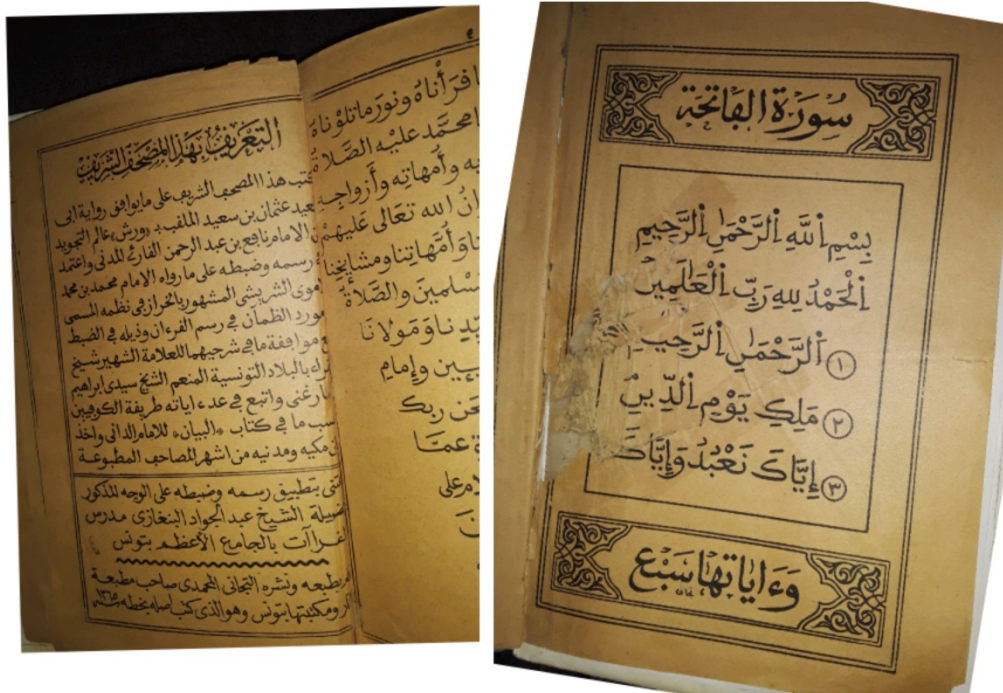 التعريف بهذا المصحف الشريف
كتب هذا المصحف الشريف على ما يوافق رواية ابى
سعيد عثمان بن سعيد الملقب بـ «ورش» عالم التجويد
الامام نافع بن عبد الرحمن القارئ المدنى واعتمد
رسمه وضبطه على ما رواه الامام محمد بن محمد
موى الشريشى المشهور بالخراز فى نظمه المسمى
مورد الظمآن فى رسم القرءان وذيله فى الضبط
موافقة ما فى شرحيهما للعلامة الشهير شيخ
راء بالبلاد التونسية المنعم الشيخ سيدى ابراهيم
مارغنى واتبع فى عدد اياته طريقة الكوفيين
سب ما فى كتاب «البيان» للامام الدانى واخذ
مكيه ومدنيه من اشهر المصاحف المطبوعة
تنى بتطبيق رسمه وضبطه على الوجه المذكور
ضيلة الشيخ عبد الجواد البنغازى مدرس
لقراآت بالجامع الأعظم بتونس
بطبعه ونشره التجانى المحمدى صاحب مطبعة
نار ومكتبتها بتونس وهو الذى كتب اصله بخطه
قرأناه ونور ما تلوناه
محمد عليه الصلاة
يه وأمهاته وأزواجه
ان الله تعالى عليهم
نا وأمهاتنا ومشايخنا
مسلمين والصلاة
يدنا ومولانا
يين وإمام
حن ربك
عما
لام على
ن
سُورَةُ الفَاتِحَة
بِسْمِ اِ۬للَّهِ اِ۬لرَّحْمَٰنِ اِ۬لرَّحِيمِ
اَ۬لْحَمْدُ لِلهِ رَبِّ اِ۬لْعَٰلَمِينَ
١ اَ۬لرَّحْمَٰنِ اِ۬لرَّحِيمِ
٢ مَلِكِ يَوْمِ اِ۬لدِّينِ
٣ إِيَّاكَ نَعْبُدُ وَإِيَّاكَ
وَءَايَاتُهَا سَبْع